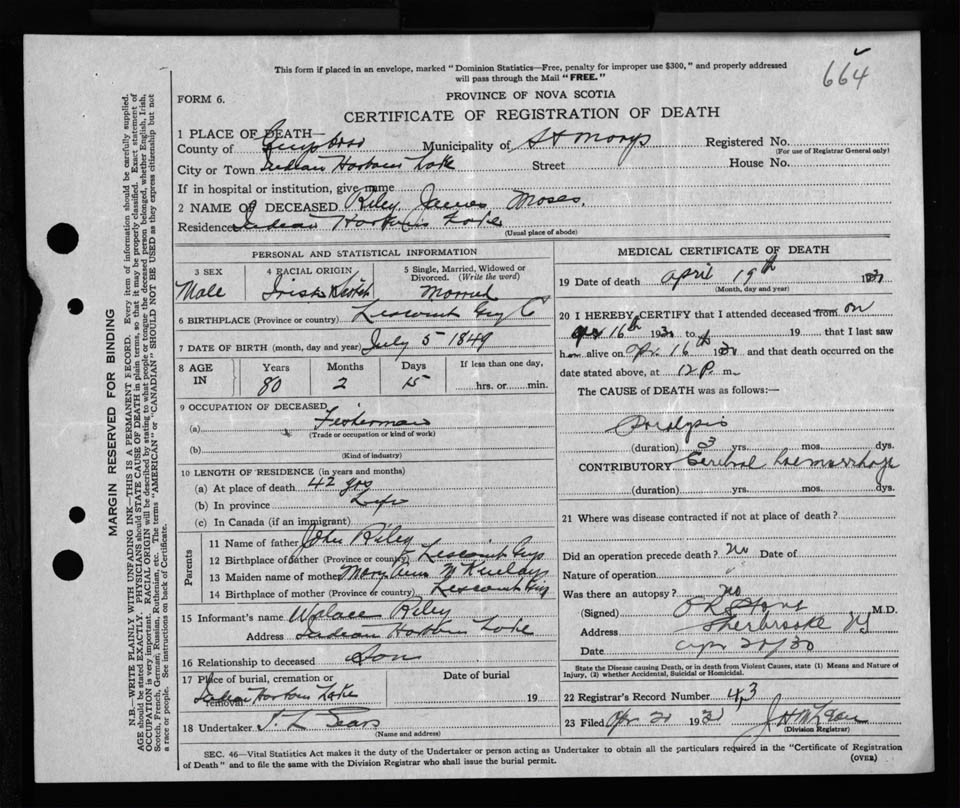 This form if placed in an envelope, marked "Dominion Statistics—Free, penalty for improper use $300," and properly addressed
will pass through the Mail "FREE."
664
FORM 6.
PROVINCE OF NOVA SCOTIA
CERTIFICATE OF REGISTRATION OF DEATH
1 PLACE OF DEATH—
County of Guysboro Municipality of St Marys Registered No.
(For use of Registrar General only)
City or Town Indian Harbour Lake Street House No.
If in hospital or institution, give name
2 NAME OF DECEASED Riley James Moses
Residence Indian Harbour Lake
(Usual place of abode)
PERSONAL AND STATISTICAL INFORMATION
3 SEX 4 RACIAL ORIGIN 5 Single, Married, Widowed or
Divorced. (Write the word)
Male Irish Married
6 BIRTHPLACE (Province or country)
7 DATE OF BIRTH (month, day and year) July 5 1849
8 AGE IN Years Months Days If less than one day,
80 2 15 hrs. or min.
9 OCCUPATION OF DECEASED
(a) Fisherman
(Trade or occupation or kind of work)
(b)
(Kind of industry)
10 LENGTH OF RESIDENCE (in years and months)
(a) At place of death 42 yrs
(b) In province Life
(c) In Canada (if an immigrant)
Parents
11 Name of father John Riley
12 Birthplace of father (Province or country)
13 Maiden name of mother Mary Ann
14 Birthplace of mother (Province or country)
15 Informant's name Wallace Riley
Address Indian Harbour Lake
16 Relationship to deceased Son
17 Place of burial, cremation or removal Date of burial
Indian Harbour Lake 19
18 Undertaker Sears
(Name and address)
MEDICAL CERTIFICATE OF DEATH
19 Date of death April 19th
(Month, day and year)
20 I HEREBY CERTIFY that I attended deceased from on
16th 1930 to 19 that I last saw
him alive on Apr. 16th 1930 and that death occurred on the
date stated above, at 12 P. m.
The CAUSE OF DEATH was as follows:—
Paralysis
(duration) 3 yrs. mos. dys.
CONTRIBUTORY Cerebral haemorrhage
(duration) yrs. mos. dys.
21 Where was disease contracted if not at place of death?
Did an operation precede death? no Date of
Nature of operation
Was there an autopsy? no
(Signed) M.D.
Address Sherbrooke NS
Date Apr 20/30
State the Disease causing Death, or in death from Violent Causes, state (1) Means and Nature of
Injury, (2) whether Accidental, Suicidal or Homicidal.
22 Registrar's Record Number 43
23 Filed Apr 21 1930
(Division Registrar)
SEC. 46—Vital Statistics Act makes it the duty of the Undertaker or person acting as Undertaker to obtain all the particulars required in the "Certificate of Registration
of Death" and to file the same with the Division Registrar who shall issue the burial permit.
(OVER)
MARGIN RESERVED FOR BINDING
N.B.—WRITE PLAINLY WITH UNFADING INK—THIS IS A PERMANENT RECORD. Every item of information should be carefully supplied.
AGE should be stated EXACTLY. PHYSICIANS should STATE CAUSE OF DEATH in plain terms, so that it may be properly classified. Exact statement of
OCCUPATION is very important. RACIAL ORIGIN will be described by stating to what people or tongue the deceased person belonged, whether English, Irish,
Scotch, French, German, Russian, Ruthenian, etc. The terms "AMERICAN" or "CANADIAN" SHOULD NOT BE USED as they express citizenship but not
a race or people. See instructions on back of Certificate.